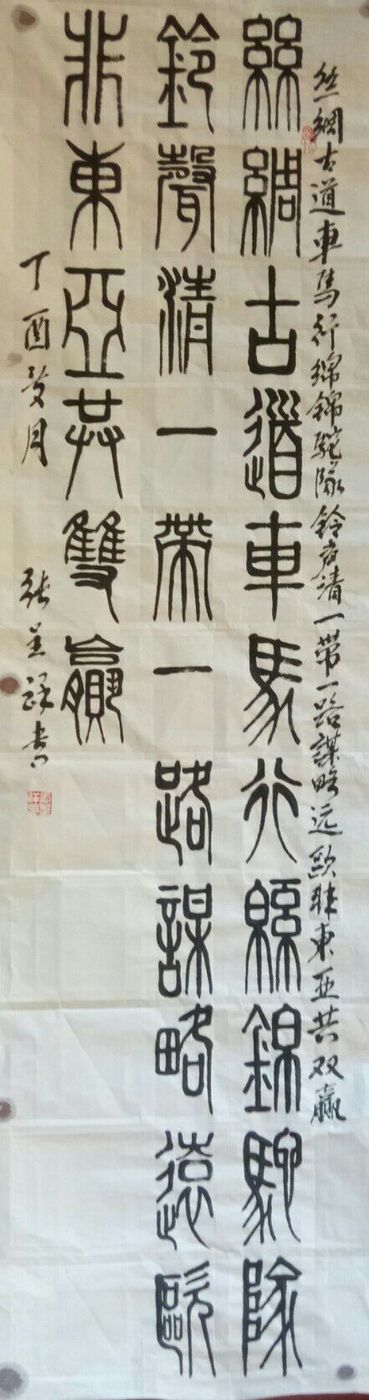 丝綢古道車馬行绵錦駝隊鈴声清一带一路謀略远歐非東亚共双赢
絲綢古道車馬行緜錦駝隊
鈴聲清一帶一路謀略遠歐
非東亞共雙贏
丁酉 月 张 书